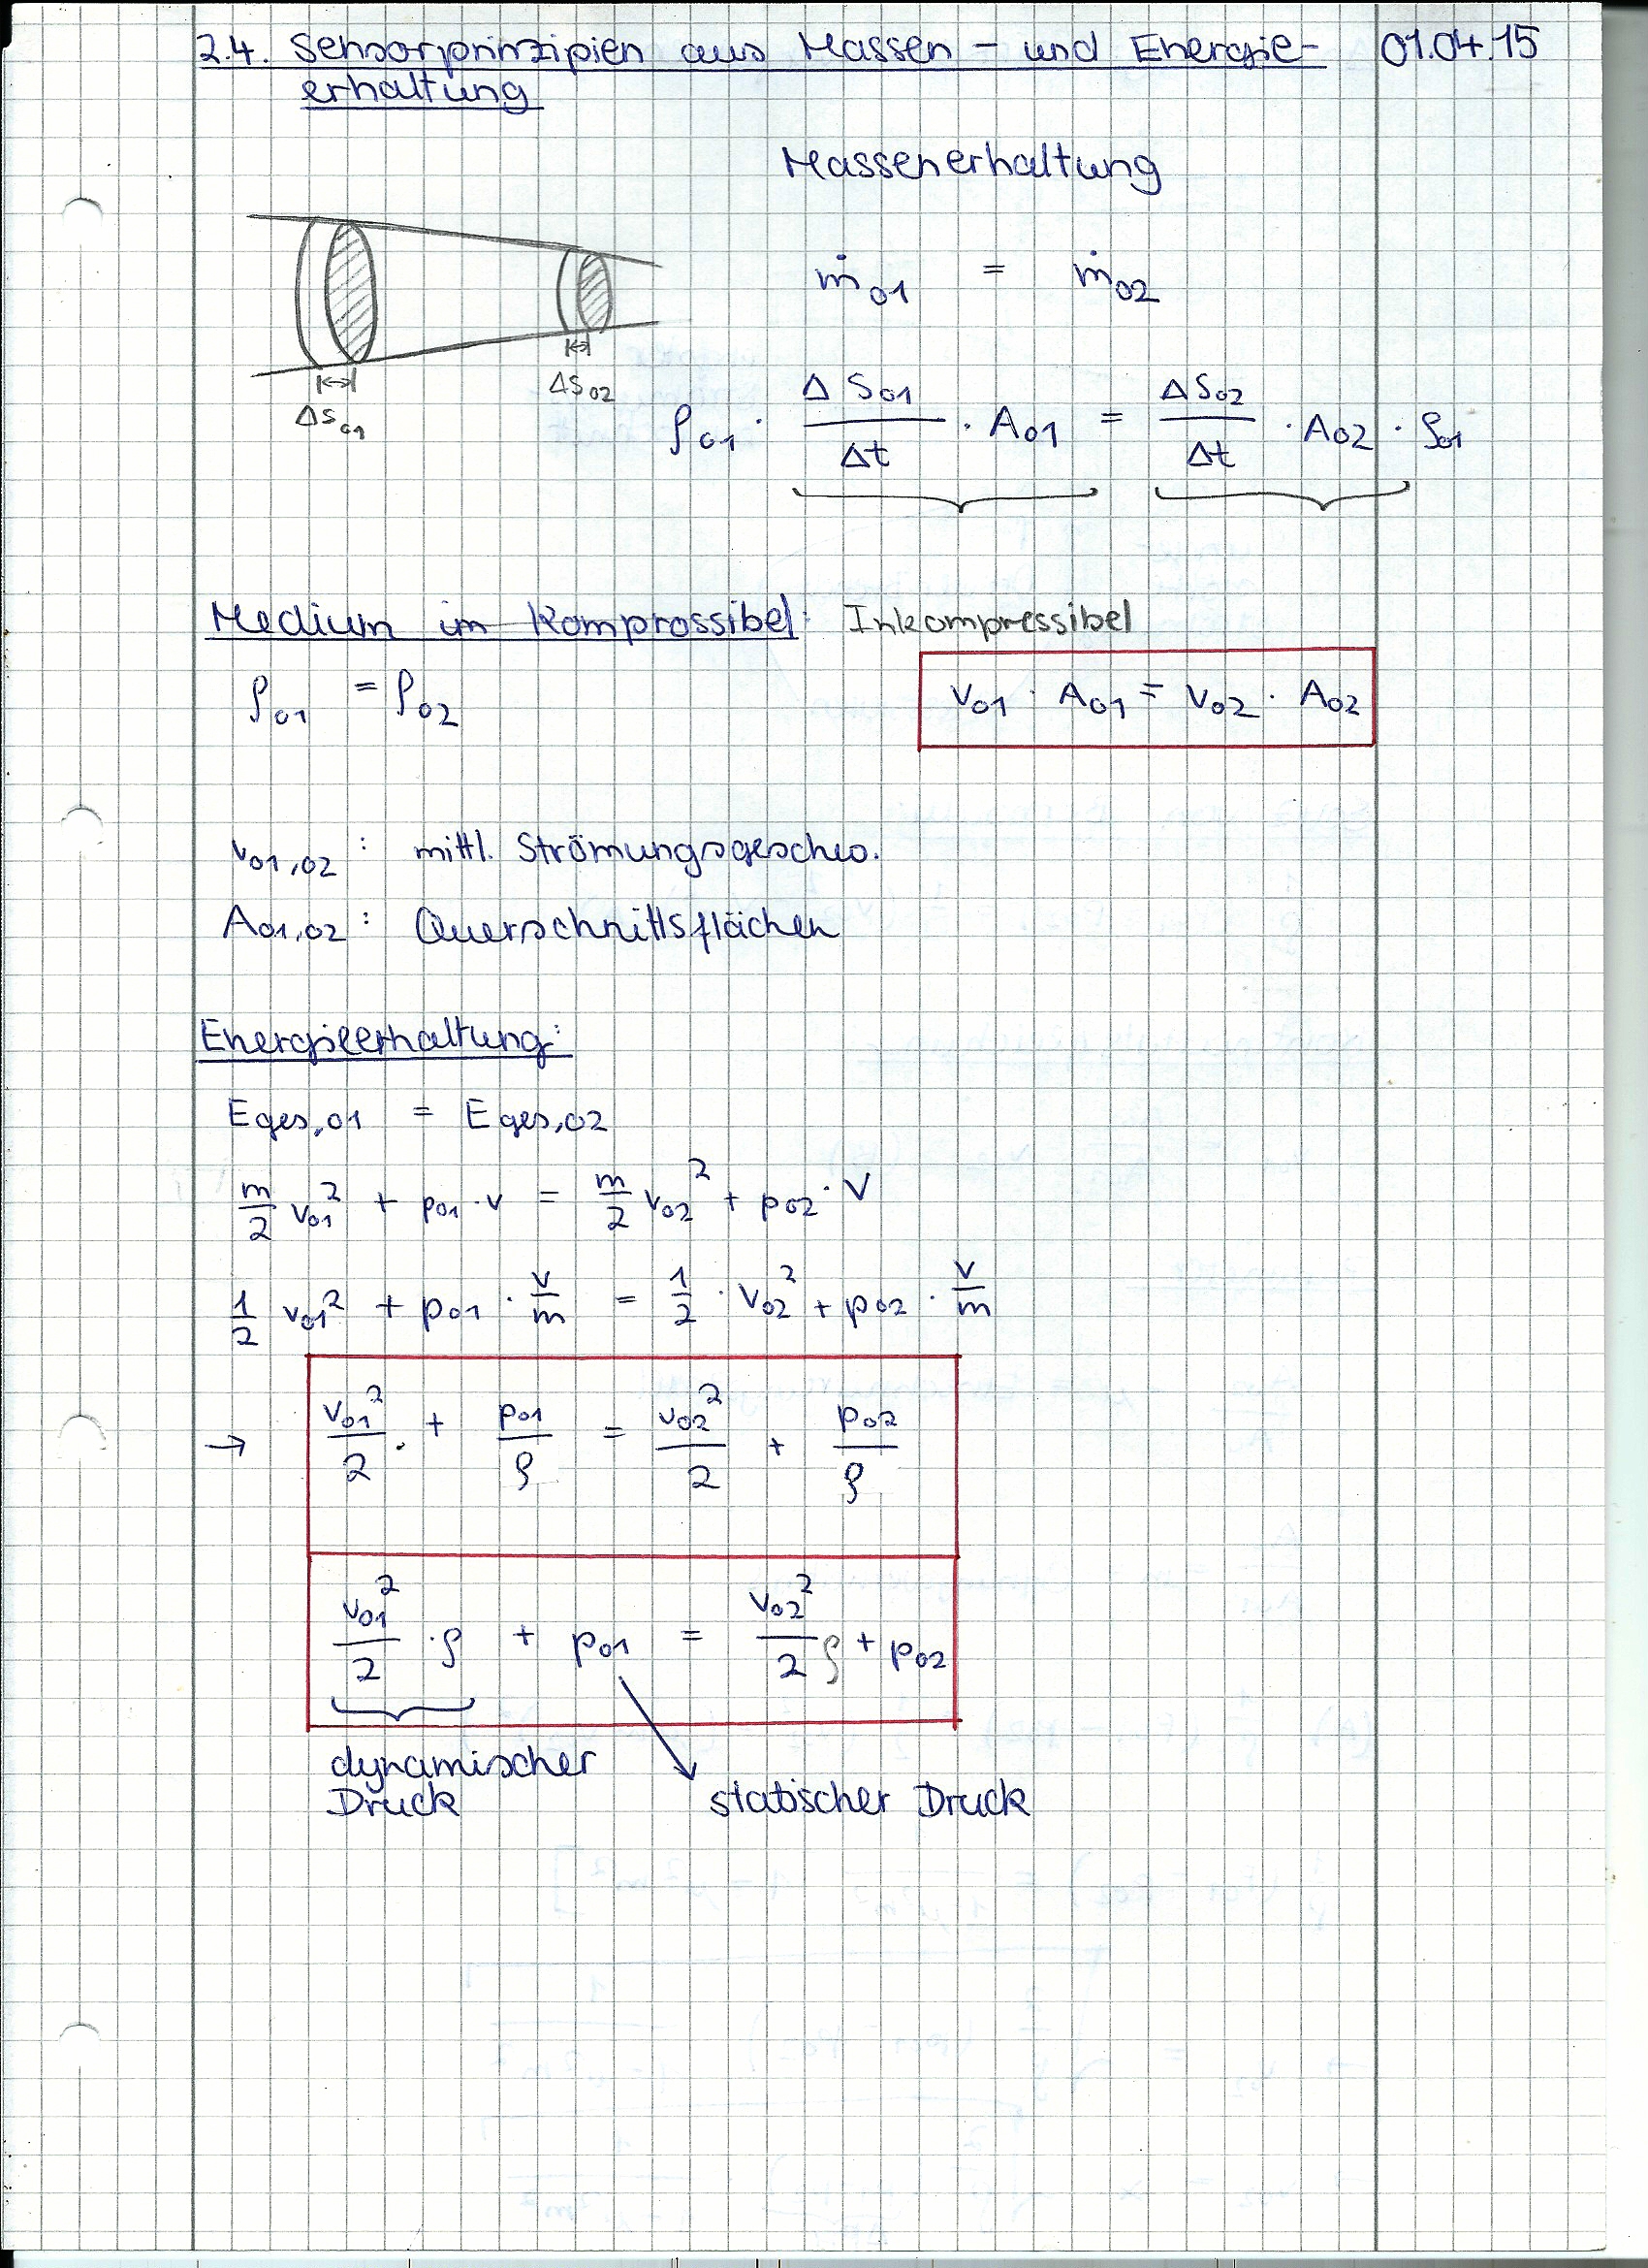 2.4. Sensorprinzipien aus Massen- und Energie- 01.04.15
erhaltung
Massenerhaltung
ṁ01 = ṁ02
Δs01
Δs02
ρ01 · Δs01/Δt · A01 = Δs02/Δt · A02 · ρ01
Medium im Komprossibel: Inkompressibel
ρ01 = ρ02
v01 · A01 = v02 · A02
v01,02 : mittl. Strömungsgeschw.
A01,02 : Querschnittsflächen
Energieerhaltung:
Eges,01 = Eges,02
m/2 v01² + p01 · v = m/2 v02² + p02 · V
1/2 v01² + p01 · v/m = 1/2 · v02² + p02 · v/m
→ v01²/2 · + p01/ρ = v02²/2 + p02/ρ
v01²/2 · ρ + p01 = v02²/2 ρ + p02
dynamischer
Druck
statischer Druck